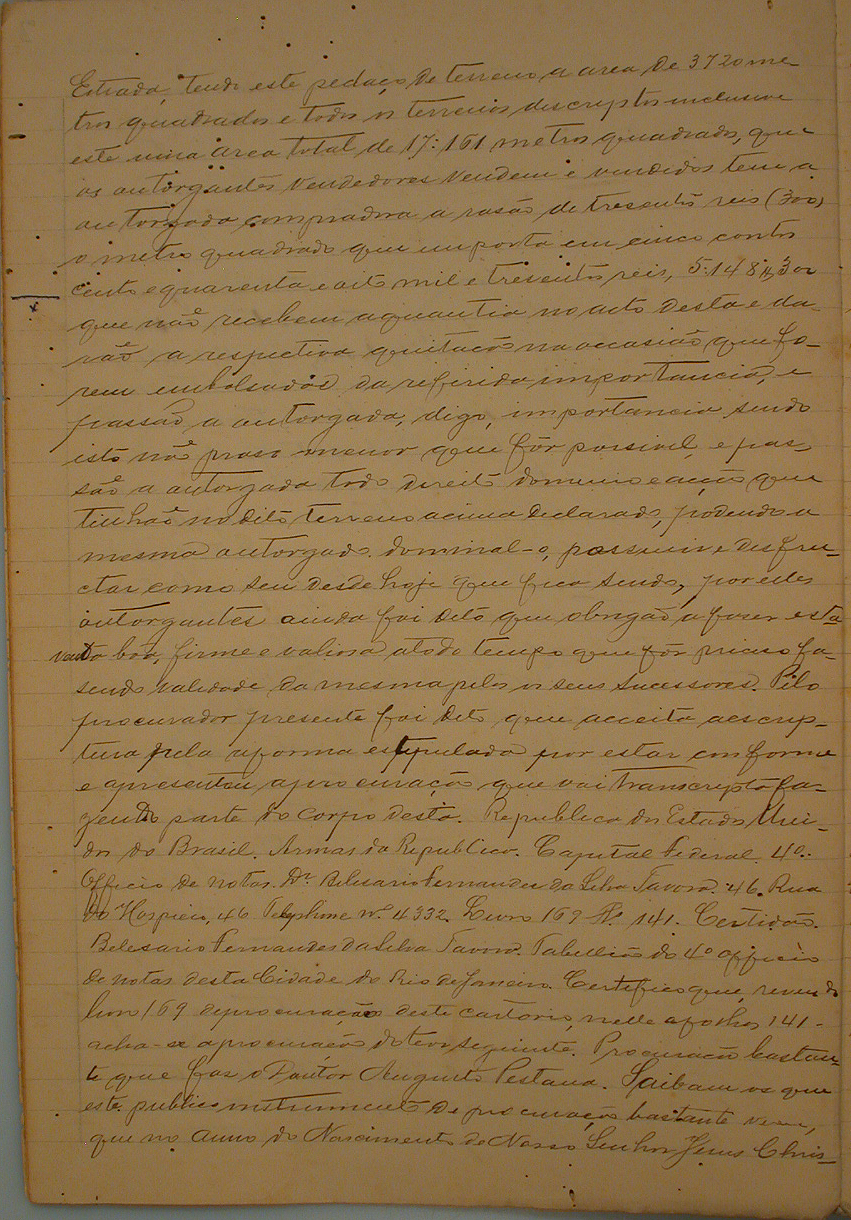 Estrada, tendo este pedaço de terreno a area de 3720 me-
tros quadrados e todos os terrenos descriptos inclusive
este uma area total de 17:161 metros quadrados, que
os outorgantes vendedores vendem e vendidos tem a
outorgada compradora a rasão de tresentos reis (300)
o metro quadrado que importa em cinco contos
cento e quarenta e oito mil e tresentos reis, 5:148$300
que não recebem a quantia no acto desta e da-
rão a respectiva quitação na occasião que fo-
rem embolsados da referida importancia, e
passão a outorgada, digo, importancia sendo
isto no praso menor que fôr possivel, e pas-
são a outorgada todo direito dominio e acção que
tinhão no dito terreno acima declarado, podendo a
mesma outorgada dominal-o, possuir e desfru-
ctar como seu desde hoje que fica sendo, por elles
outorgantes ainda foi dito que obrigão a faser esta
venda bôa, firme e valiosa a todo tempo que fôr preciso fa-
sendo validade da mesma pelos os seus sucessores. Pelo
procurador presente foi dito que acceita a escrip-
tura pela a forma estipulada por estar conforme
e apresentou a procuração que vai transcripta fa-
zendo parte do corpo desta. Republica dos Estados Uni-
dos do Brasil. Armas da Republica. Capital Federal. 4º.
Officio de notas. Dr. Belesario Fernandes da Silva Tavora. 46. Rua
do Hospicio, 46 Telephone nº. 4332. Livro 169 Fls. 141. Certidão.
Belesario Fernandes da Silva Tavora. Tabellião do 4º officio
de notas desta Cidade do Rio de Janeiro. Certifico que, revendo
livro 169 de procuração deste cartorio, nelle a folhas 141-
acha-se a procuração do teor seguinte. Procuração bastan-
te que faz o Doutor Augusto Pestana. Saibam os que
este publico instrumento de procuração bastante virem,
que no anno do Nascimento de Nosso Senhor Jesus Chris-